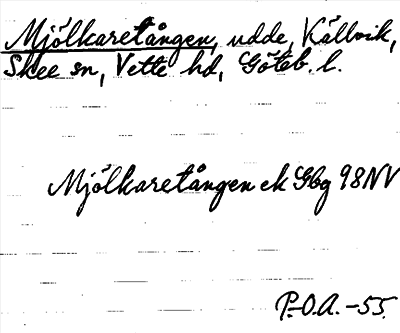 Mjölkaretången, udde, Källvik,
Skee sn, Vette hd, Göteb. l.
Mjölkaretången ek Gbg 98NV
P.O.A. -55.